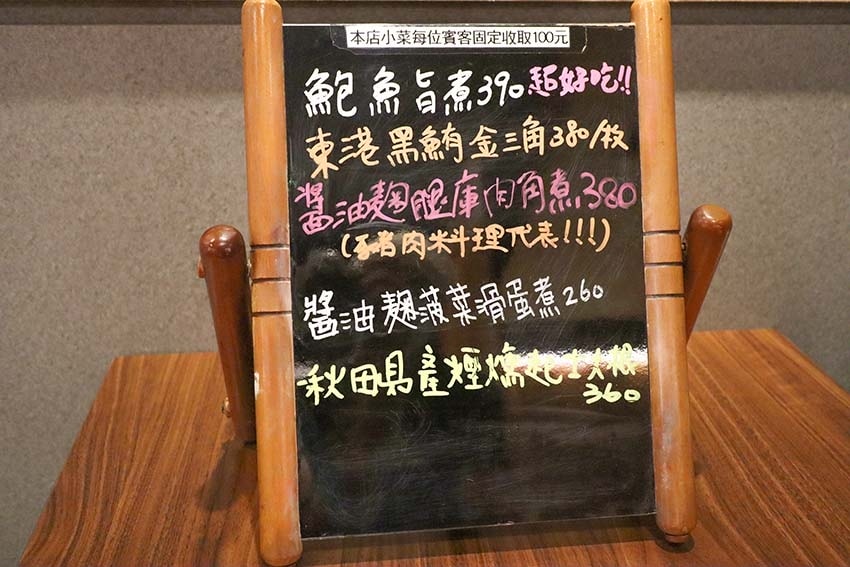 本店小菜每位賓客固定收取100元
鮑魚旨煮390 超好吃!!
東港黑鮪金三角380/枚
醬油麹腿庫肉角煮380
(豬肉料理代表!!!)
醬油麹菠菜滑蛋煮260
秋田県產煙燻起士大根
360